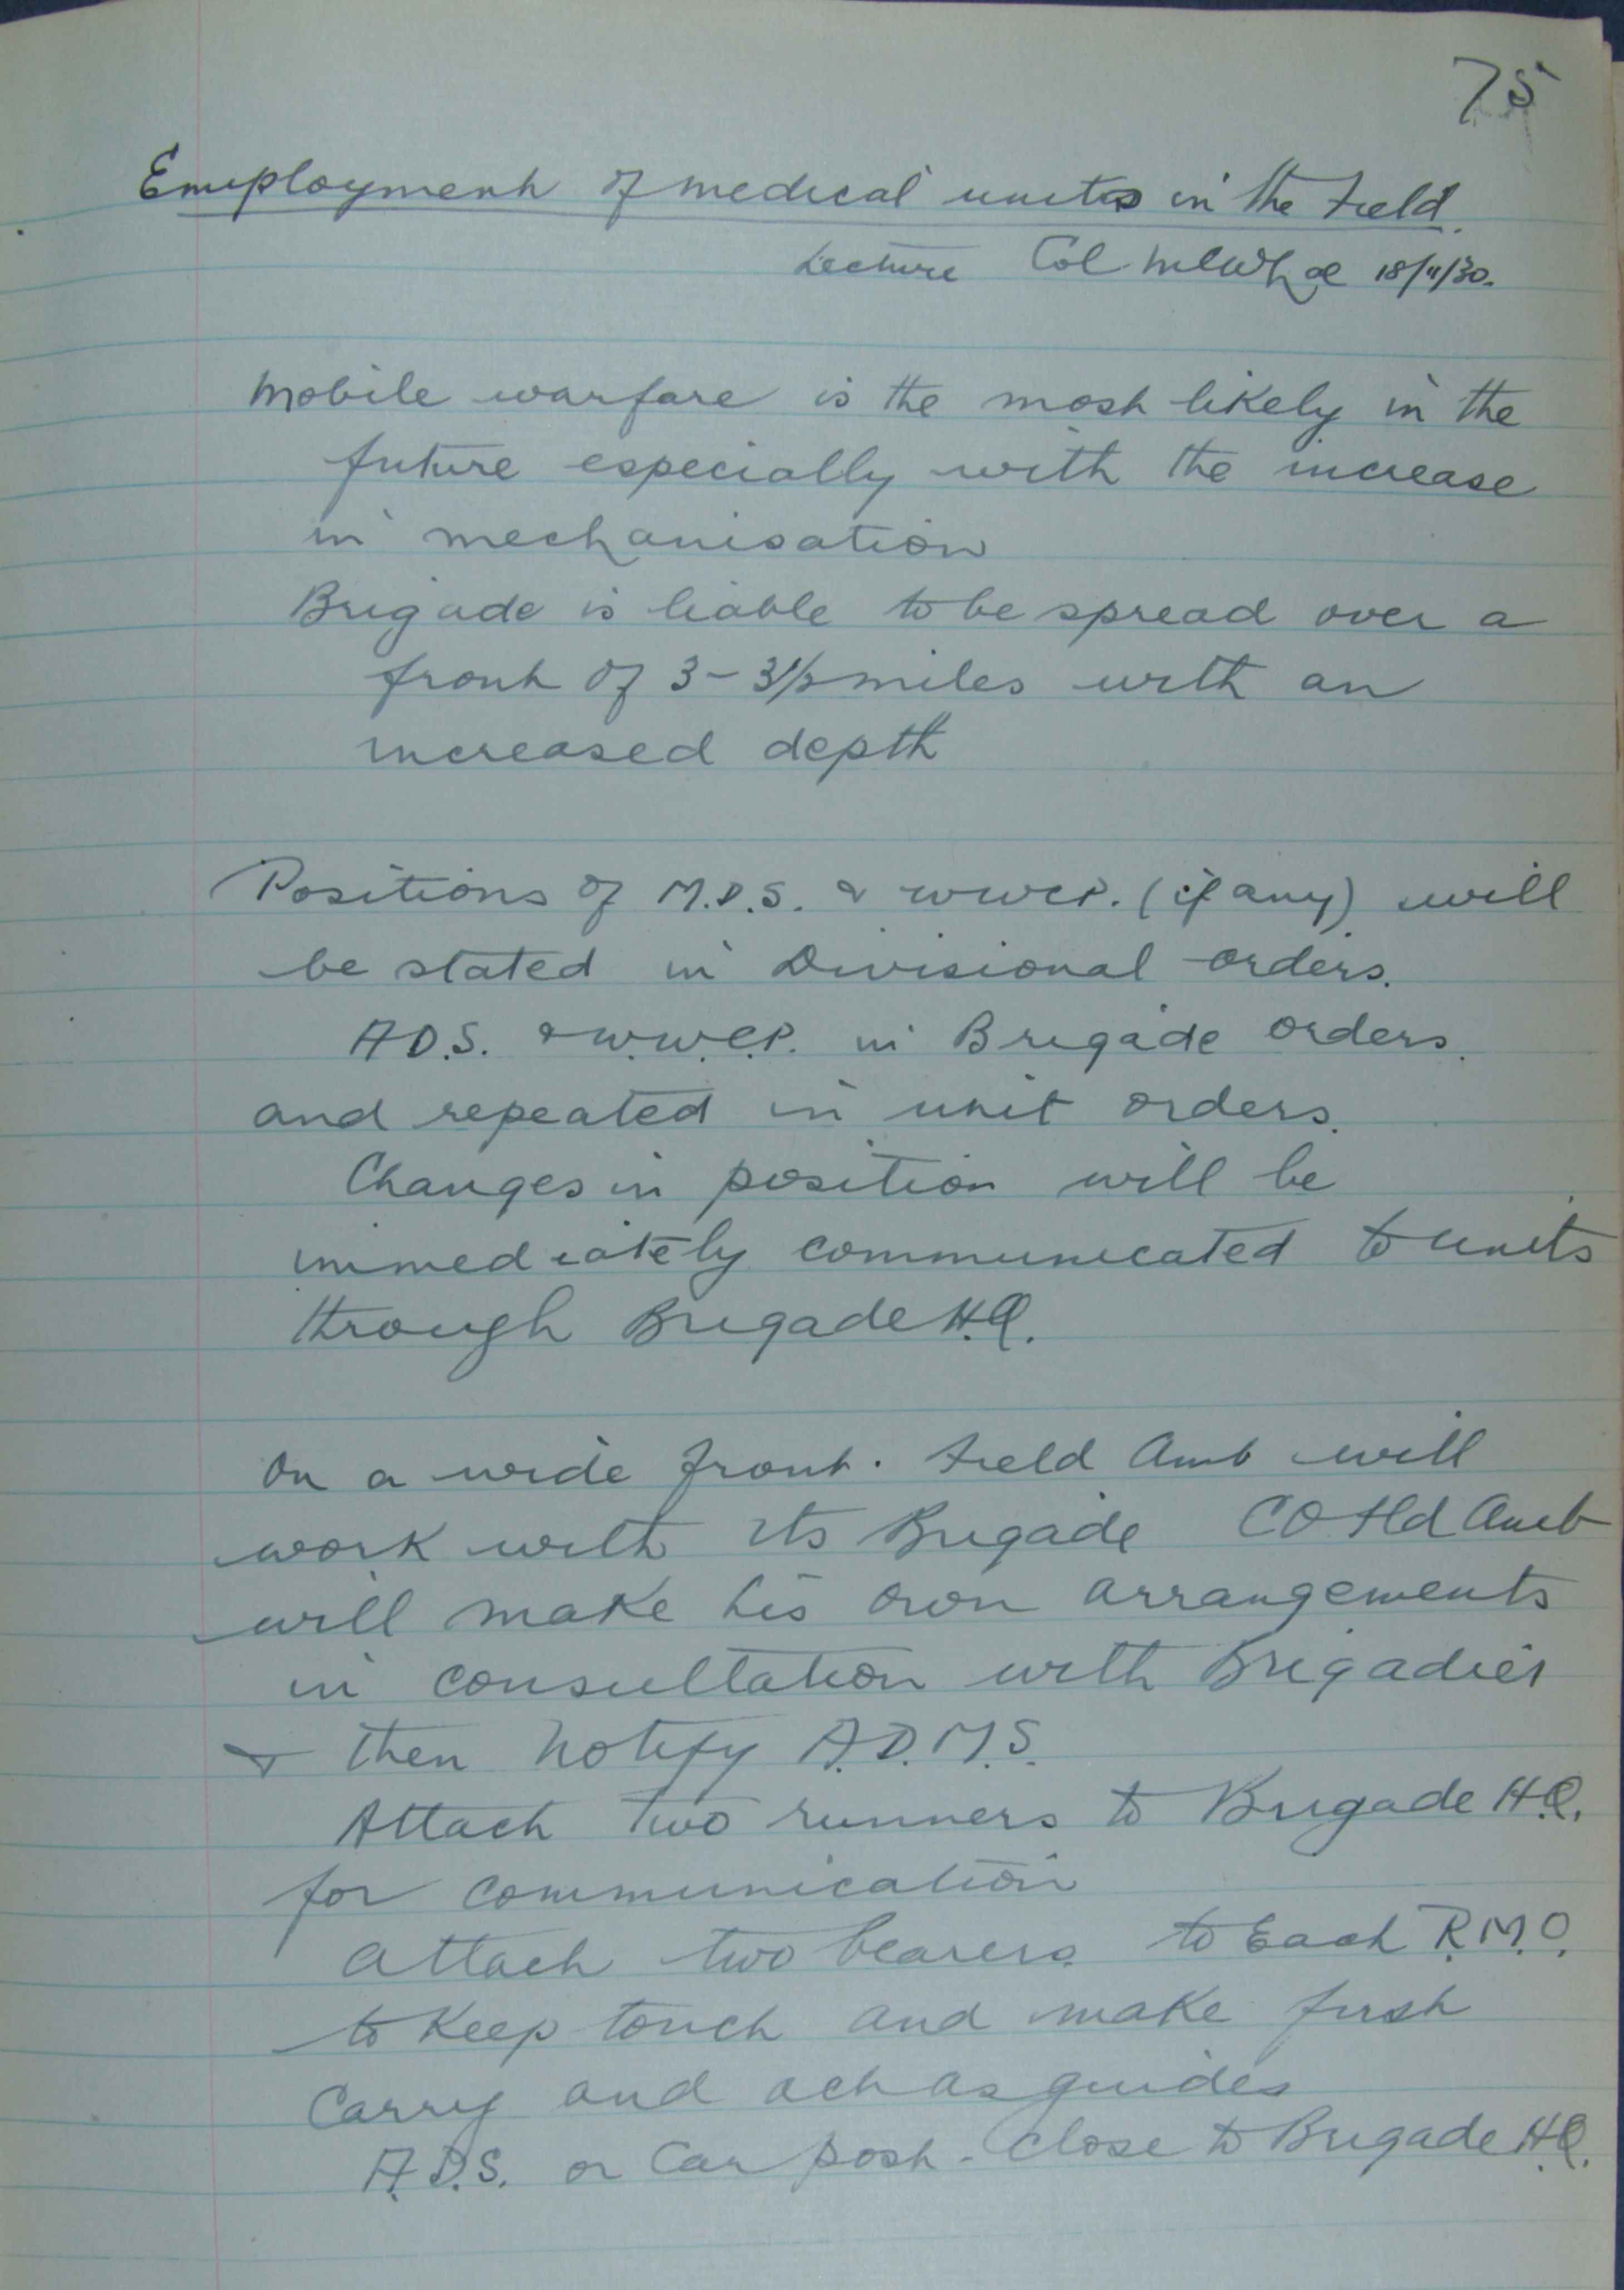 75
Employment of medical units in the Field.
Lecture Col McWhae 18/11/30.
Mobile warfare is the most likely in the
future especially with the increase
in mechanisation
Brigade is liable to be spread over a
front of 3 - 3½ miles with an
increased depth
Positions of M.D.S. & WWCP. (if any) will
be stated in Divisional orders.
A.D.S. & W.W.C.P. in Brigade orders.
and repeated in unit orders.
Changes in position will be
immediately communicated to units
through Brigade H.Q.
On a wide front. Field Amb will
work with its Brigade CO Fld Amb
will make his own arrangements
in consultation with Brigadier
& then notify A.D.M.S.
Attach two runners to Brigade H.Q.
for communication
Attach two bearers to Each R.M.O.
to keep touch and make first
Carry and act as guides
A.D.S. or Car post - Close to Brigade H.Q.